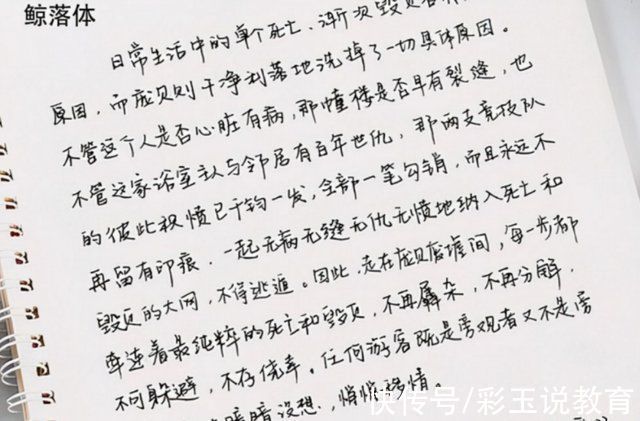 鲸落体
日常生活中的单个死亡、渐次毁灭
原因，而庞贝则干净利落地洗掉了一切具体原因。
不管这个人是否心脏有病，那幢楼是否早有裂缝，也
不管这家浴室主人与邻居有百年世仇，那两支竞技队
的彼此积愤已千钧一发，全部一笔勾销，而且永远不
再留有印痕，一起无病无缝无仇无愤地纳入死亡和
毁灭的大网，不得逃遁。因此，走在庞贝废墟间，每一步都
牵连着最纯粹的死亡和毁灭，不再羼杂，不再分解，
不可躲避，不存侥幸。任何游客既是旁观者又不是旁
暗暗设想，悄悄移情。
快传号/彩玉说教育